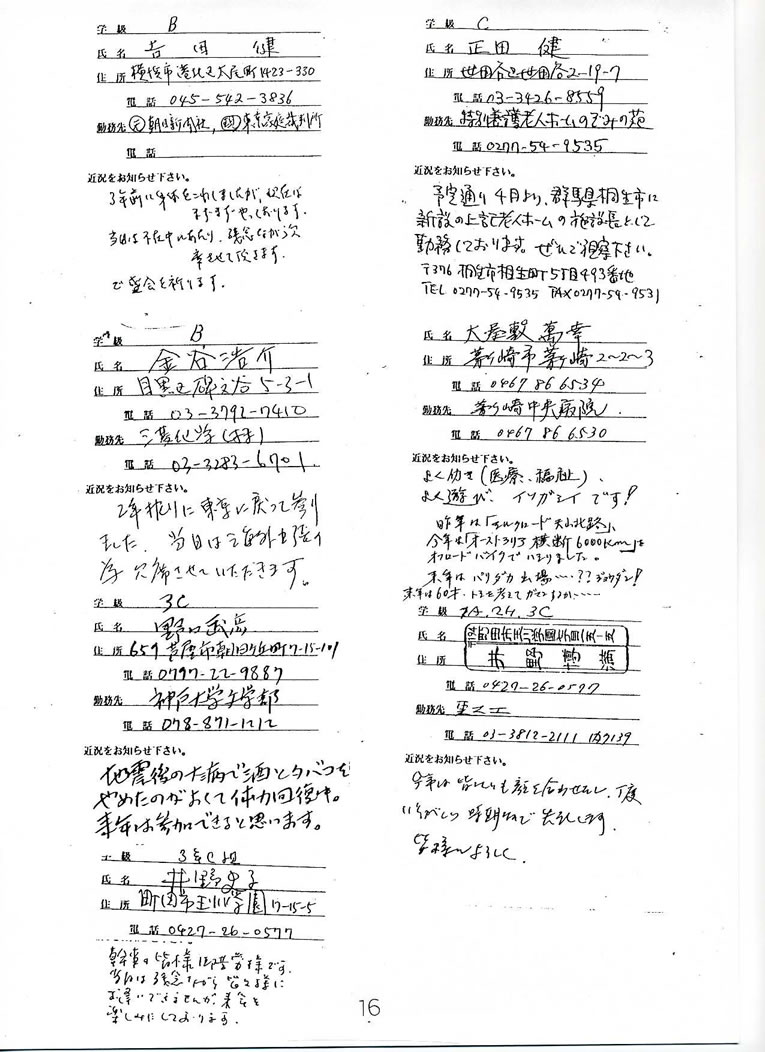 学級 B
氏名 吉田 健
住所 横浜市港北区大尾町1423-330
電話 045-542-3836
勤務先 元 朝日新聞社, 現 東京家庭裁判所
電話
近況をお知らせ下さい。
3年前に身体をこわしましたが, 現在は
で盛会を祈ります.
学級 B
氏名 金谷浩介
住所 目黒区碑文谷5-3-1
電話 03-3791-7410
勤務先 三菱化学(株)
電話 03-3283-6701.
近況をお知らせ下さい。
2年振りに東京に戻って参り
ました. 当日は海外出張の
為欠席させていただきます。
学級 3C
氏名 野口武彦
住所 659 芦屋市朝日ケ丘町7-15-101
電話 0797-22-9887
勤務先 神戸大学文学部
電話 078-871-1212
近況をお知らせ下さい。
地震後の大病で酒とタバコを
やめたのがよくて体力回復中。
来年は参加できると思います。
学級 3年C組
氏名 井野史子
住所 町田市玉川学園7-15-5
電話 0427-26-0577
幹事の皆様御苦労様です.
当日は残念ながら皆々様に
お逢いできませんが来年を
楽しみにしております.
学級 C
氏名 正田 健
住所 世田谷区世田谷2-19-7
電話 03-3426-8559
勤務先 特別養護老人ホームのぞみの苑
電話 0277-54-9535
近況をお知らせ下さい。
予定通り4月より、群馬県桐生市に
新設の上記老人ホームの施設長として
勤務しております。ぜひご視察下さい。
〒376 桐生市相生町5丁目493番地
TEL 0277-54-9535 FAX 0277-54-9531
氏名 大屋敷 萬幸
住所 茅ヶ崎市茅ヶ崎2~2~3
電話 0467 86 6534
勤務先 茅ヶ崎中央病院
電話 0467 86 6530
近況をお知らせ下さい。
よく働き(医療、福祉)、
よく遊び、イソガシイです!
昨年は「シルクロード天山北路」、
今年は「オーストラリア横断6000km」を
オフロードバイクではしりました。
来年はパリダカ出場……??ジョウダン!
来年は60才.トシを考えて
学級 1A.2H.3C
氏名
住所 井野
電話 0427-26-0577
勤務先
電話 03-3812-2111 内7139
近況をお知らせ下さい。
今年は皆にも顔を合わせない、丁度
いそがしい時期なので失礼します.
皆様によろしく.
16